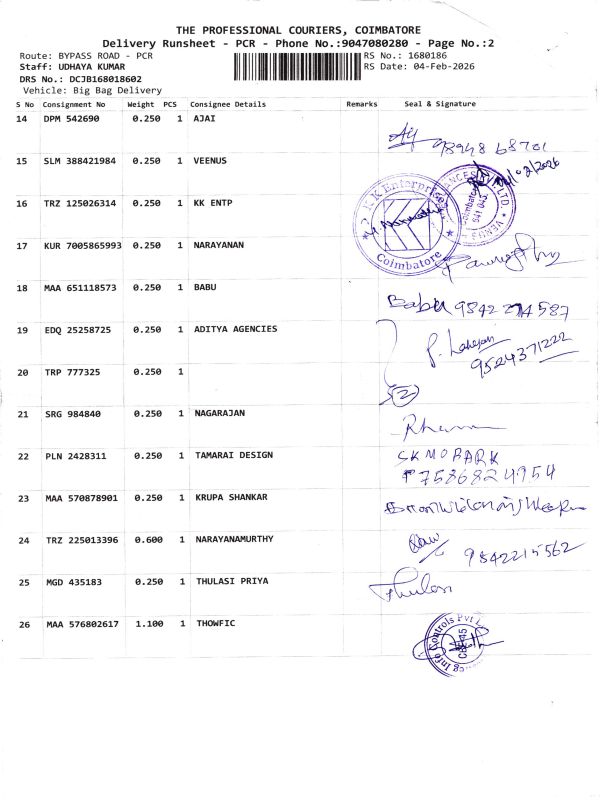 THE PROFESSIONAL COURIERS, COIMBATORE
Delivery Runsheet - PCR - Phone No.:9047080280 - Page No.:2
Route: BYPASS ROAD - PCR RS No.: 1680186
Staff: UDHAYA KUMAR RS Date: 04-Feb-2026
DRS No.: DCJB168018602
Vehicle: Big Bag Delivery
S No Consignment No Weight PCS Consignee Details Remarks Seal & Signature
14 DPM 542690 0.250 1 AJAI
98948 68701
15 SLM 388421984 0.250 1 VEENUS
16 TRZ 125026314 0.250 1 KK ENTP
K K Enterprises
Coimbatore
17 KUR 7005865993 0.250 1 NARAYANAN
18 MAA 651118573 0.250 1 BABU
Babu
19 EDQ 25258725 0.250 1 ADITYA AGENCIES
9524371222
20 TRP 777325 0.250 1
2
21 SRG 984840 0.250 1 NAGARAJAN
22 PLN 2428311 0.250 1 TAMARAI DESIGN
SK MOBARK
7586824954
23 MAA 570878901 0.250 1 KRUPA SHANKAR
24 TRZ 225013396 0.600 1 NARAYANAMURTHY
9842215562
25 MGD 435183 0.250 1 THULASI PRIYA
Thulasi
26 MAA 576802617 1.100 1 THOWFIC